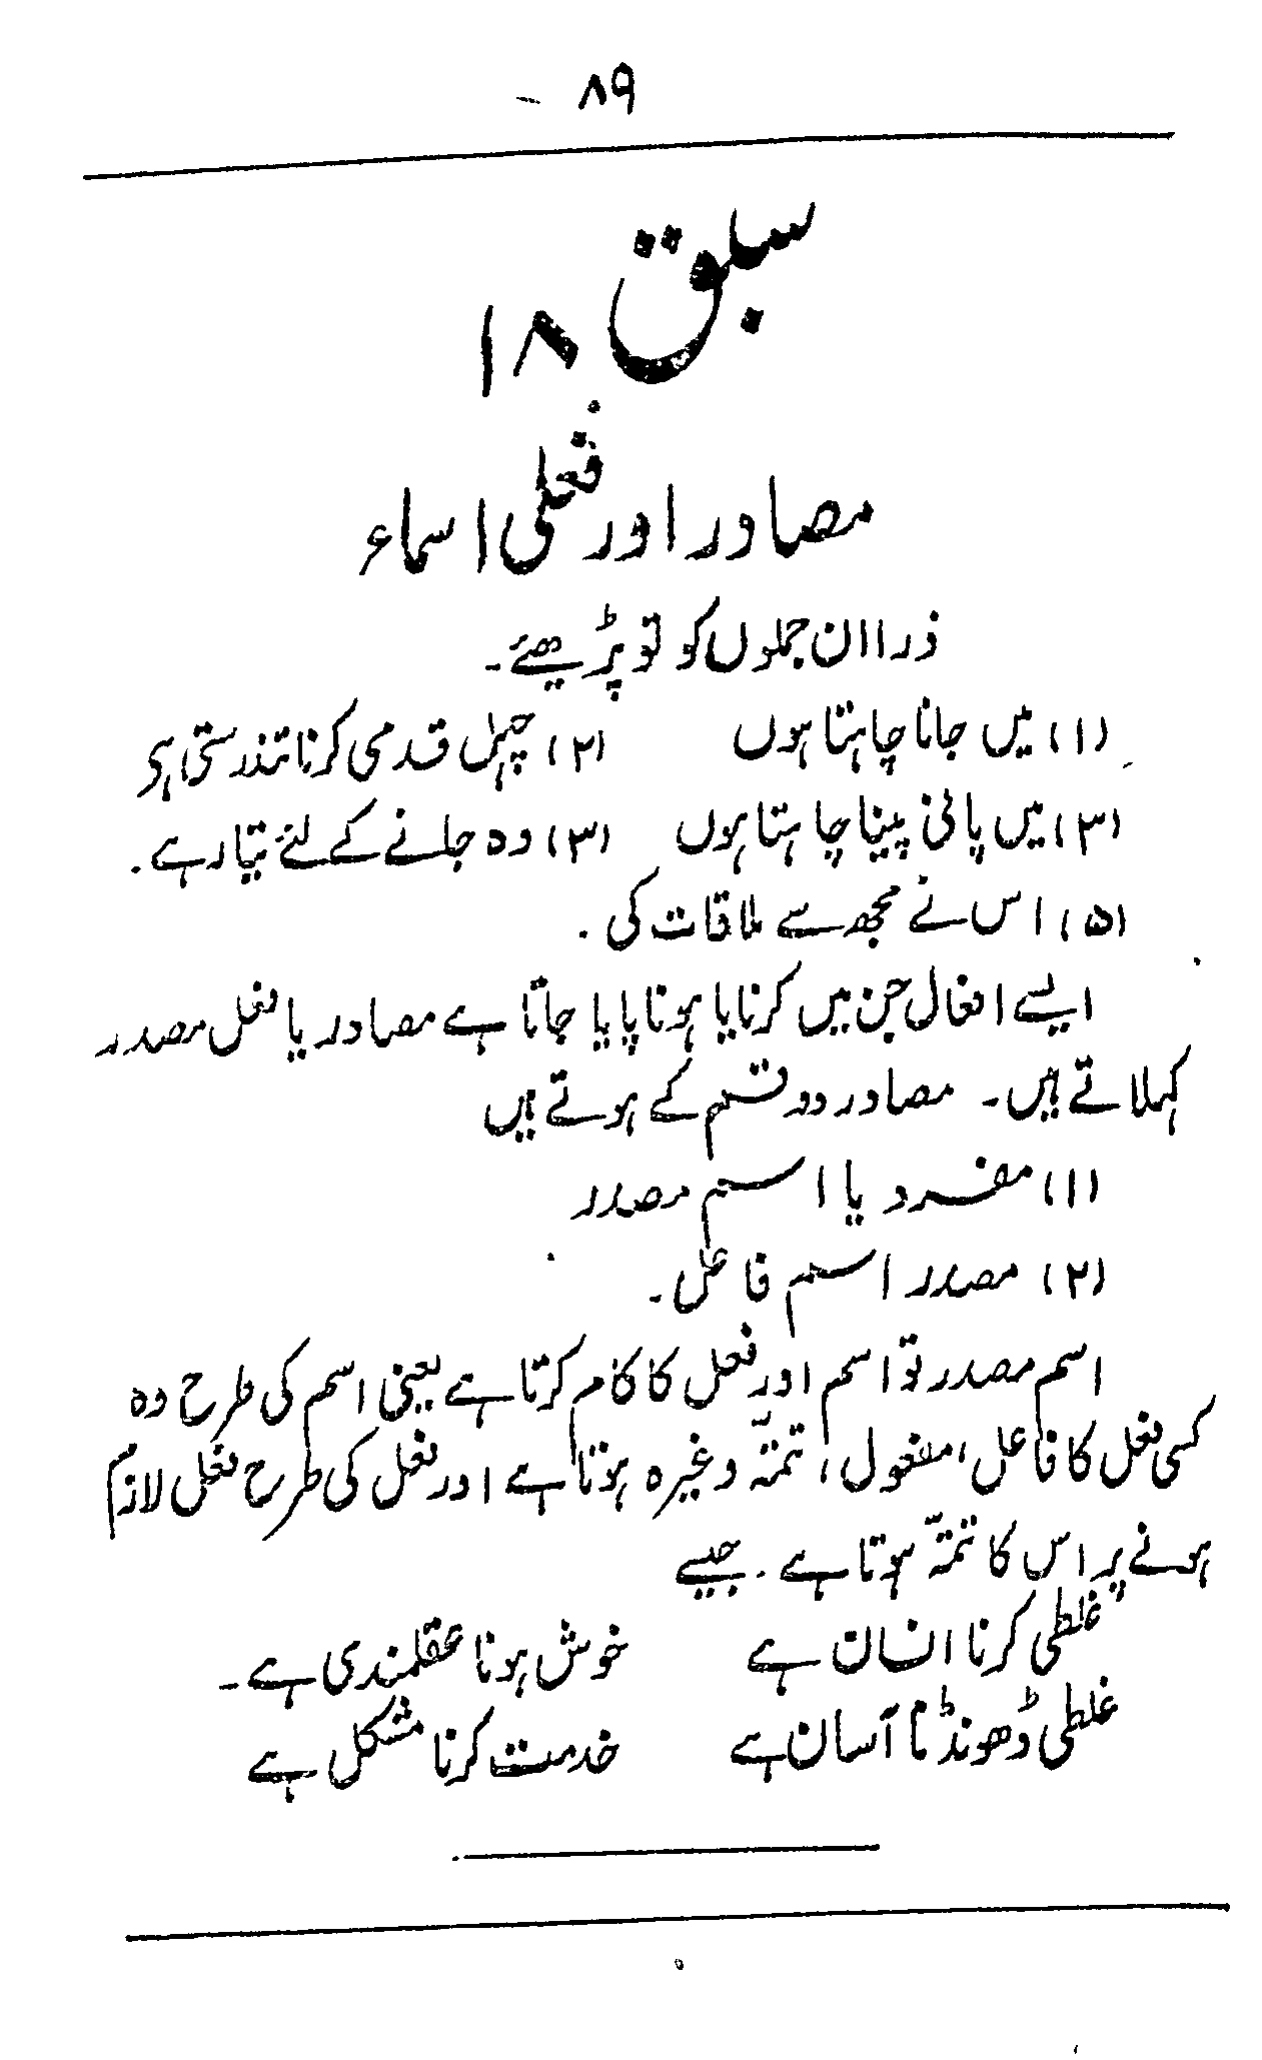 ۸۹
سبق ۱۸
مصادر اور فعلی اسماء
ذرا ان جملوں کو تو پڑھیئے۔
(۱) میں جانا چاہتا ہوں (۲) چہل قدمی کرنا تندرستی ہی
(۳) میں پانی پینا چاہتا ہوں (۳) وہ جانے کے لئے تیار ہے۔
(۵) اس نے مجھ سے ملاقات کی۔
ایسے افعال جن میں کرنا یا ہونا پایا جاتا ہے مصادر یا فعل مصدر
کہلاتے ہیں۔ مصادر دو قسم کے ہوتے ہیں
(۱) مفرد یا اسم مصدر
(۲) مصدر اسم فاعل۔
اسم مصدر تو اسم اور فعل کا کام کرتا ہے یعنی اسم کی طرح وہ
کسی فعل کا فاعل، مفعول، تتمّہ وغیرہ ہوتا ہے اور فعل کی طرح فعل لازم
ہونے پر اس کا تتمّہ ہوتا ہے۔ جیسے
غلطی کرنا انسان ہے خوش ہونا عقلمندی ہے۔
غلطی ڈھونڈنا آسان ہے خدمت کرنا مشکل ہے